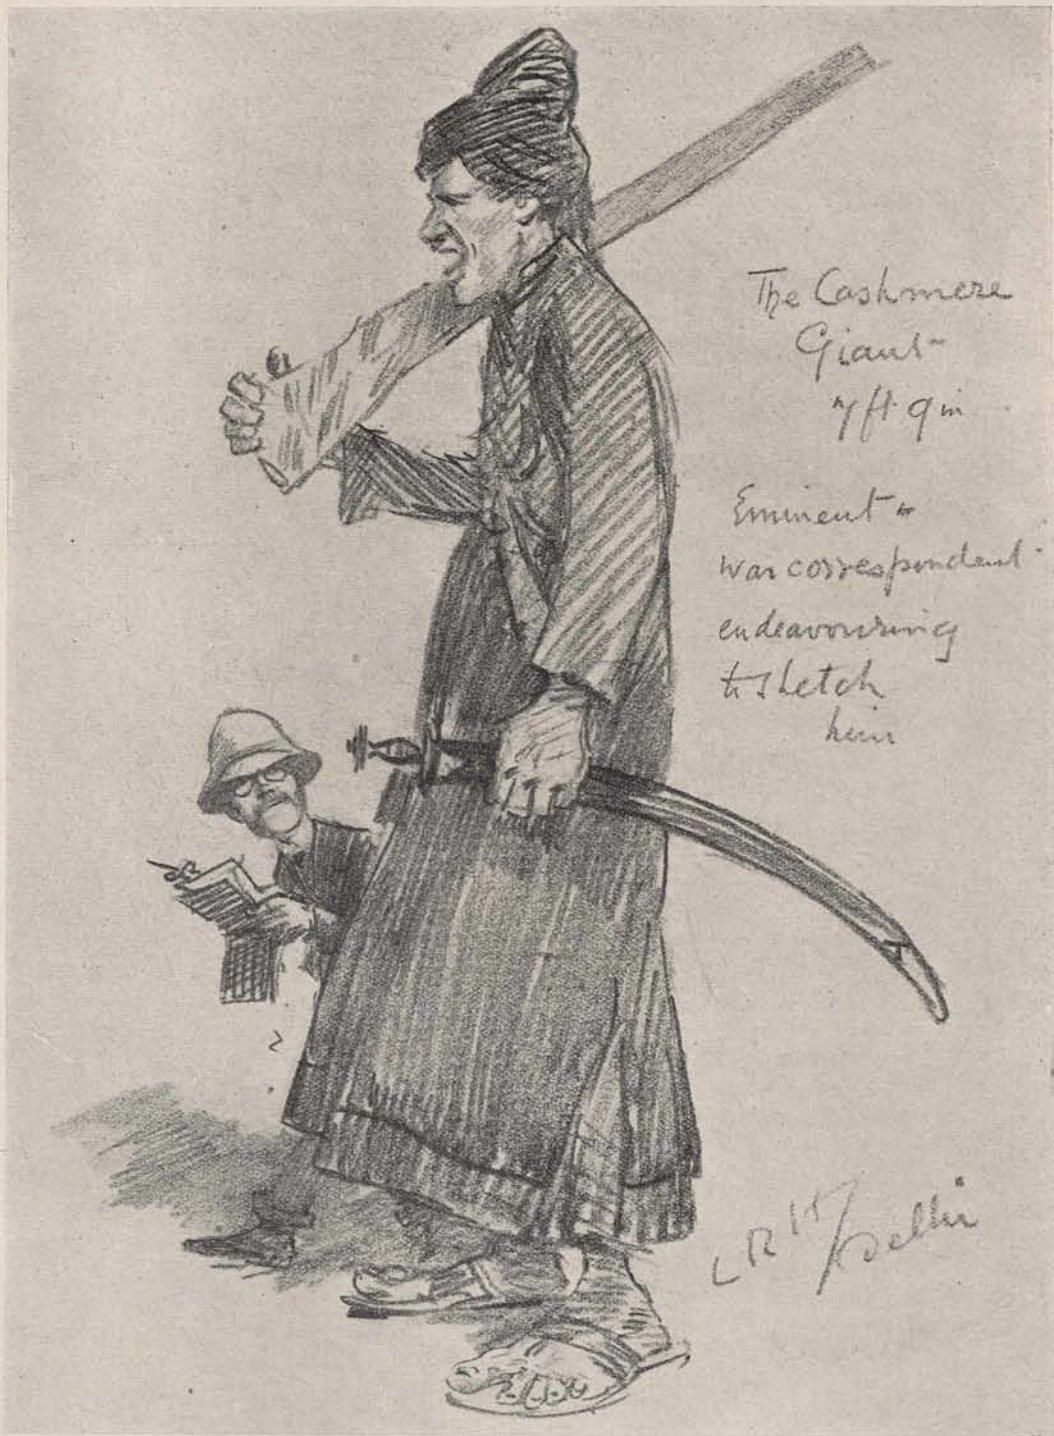 The Cashmere
Giant
7 ft 9 in
Eminent
war correspondent
endeavouring
to sketch
him
LRH/Delhi